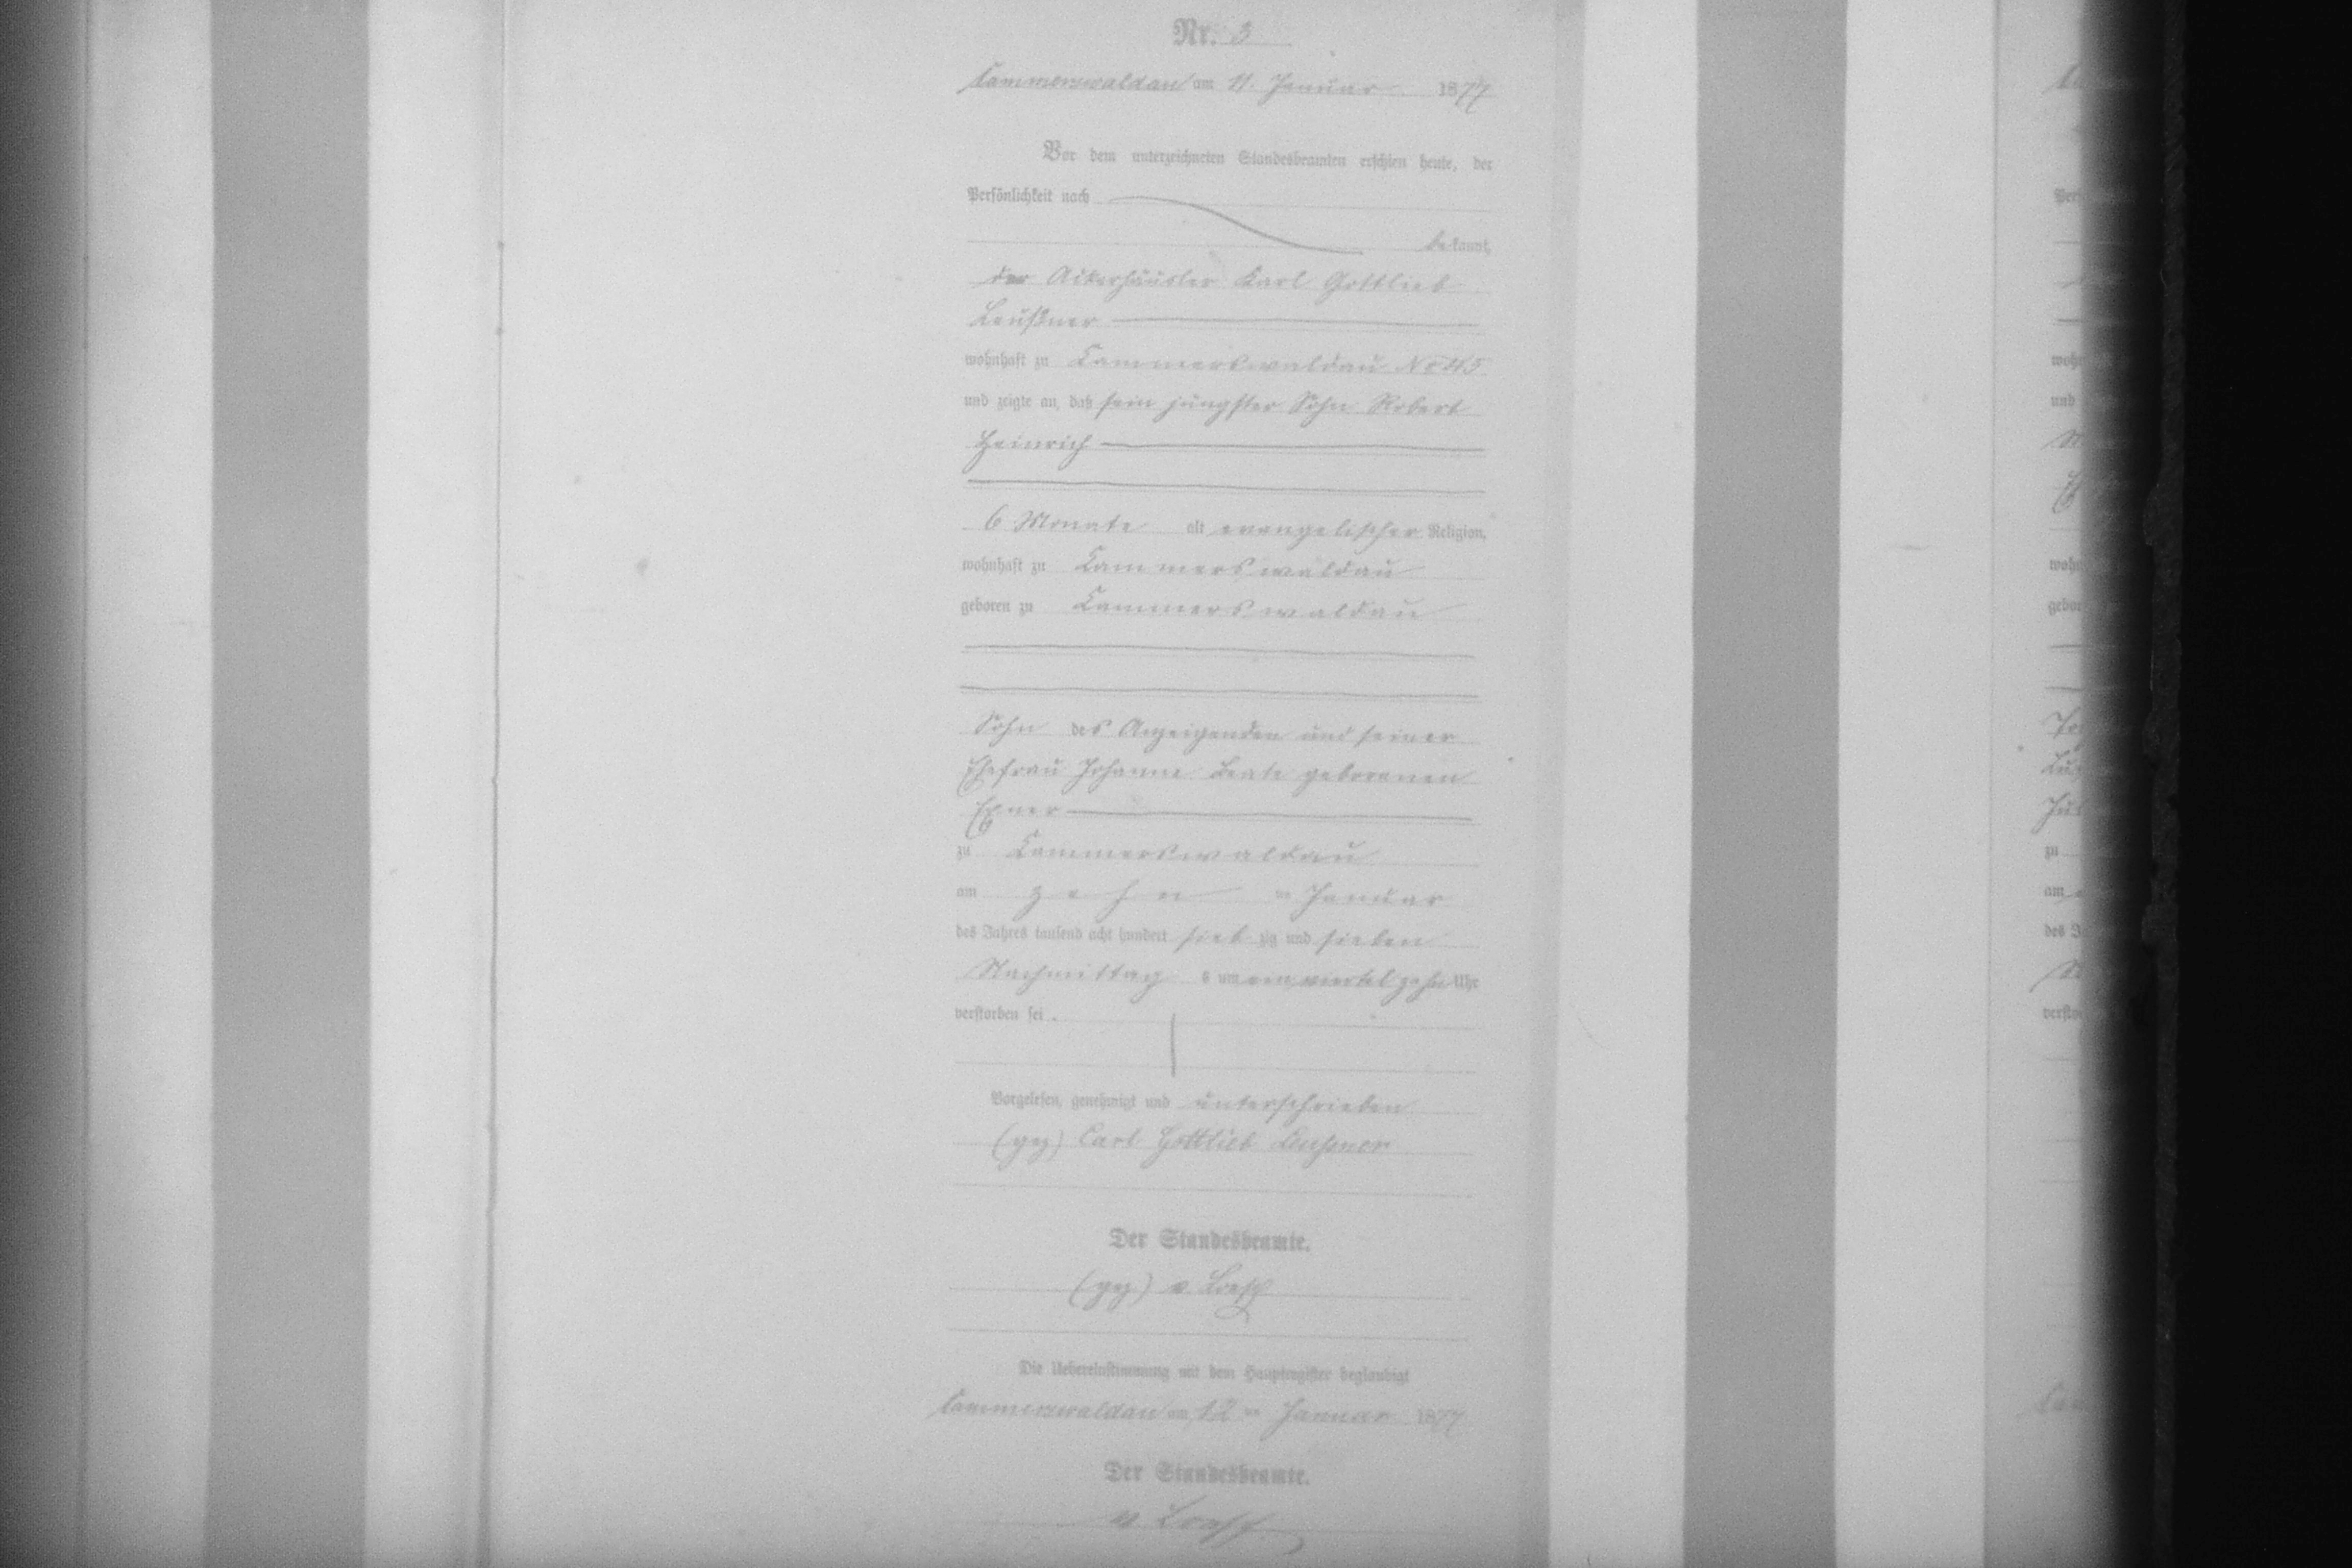 Nr. 3
Cammerswaldau am 11. Januar 1877
Vor dem unterzeichneten Standesbeamten erschien heute, der
Persönlichkeit nach
bekannt,
der Ackerhäusler Karl Gottlieb
Leußner
wohnhaft zu Cammerswaldau No 45
und zeigte an, daß sein jüngster Sohn Robert
Heinrich
6 Monate alt evangelischer Religion,
wohnhaft zu Cammerswaldau
geboren zu Cammerswaldau
Sohn des Anzeigenden und seiner
Ehefrau Johanne Beate geborenen
Exner
zu Cammerswaldau
am zehn ten Januar
des Jahres tausend acht hundert siebzig und sieben
Nachmittags um ein viertel zehn Uhr
verstorben sei.
Vorgelesen, genehmigt und unterschrieben
(gez) Carl Gottlieb Leußner
Der Standesbeamte.
(gez) v Loesch
Die Uebereinstimmung mit dem Hauptregister beglaubigt
Cammerswaldau am 12 ten Januar 1877
Der Standesbeamte.
v Loesch